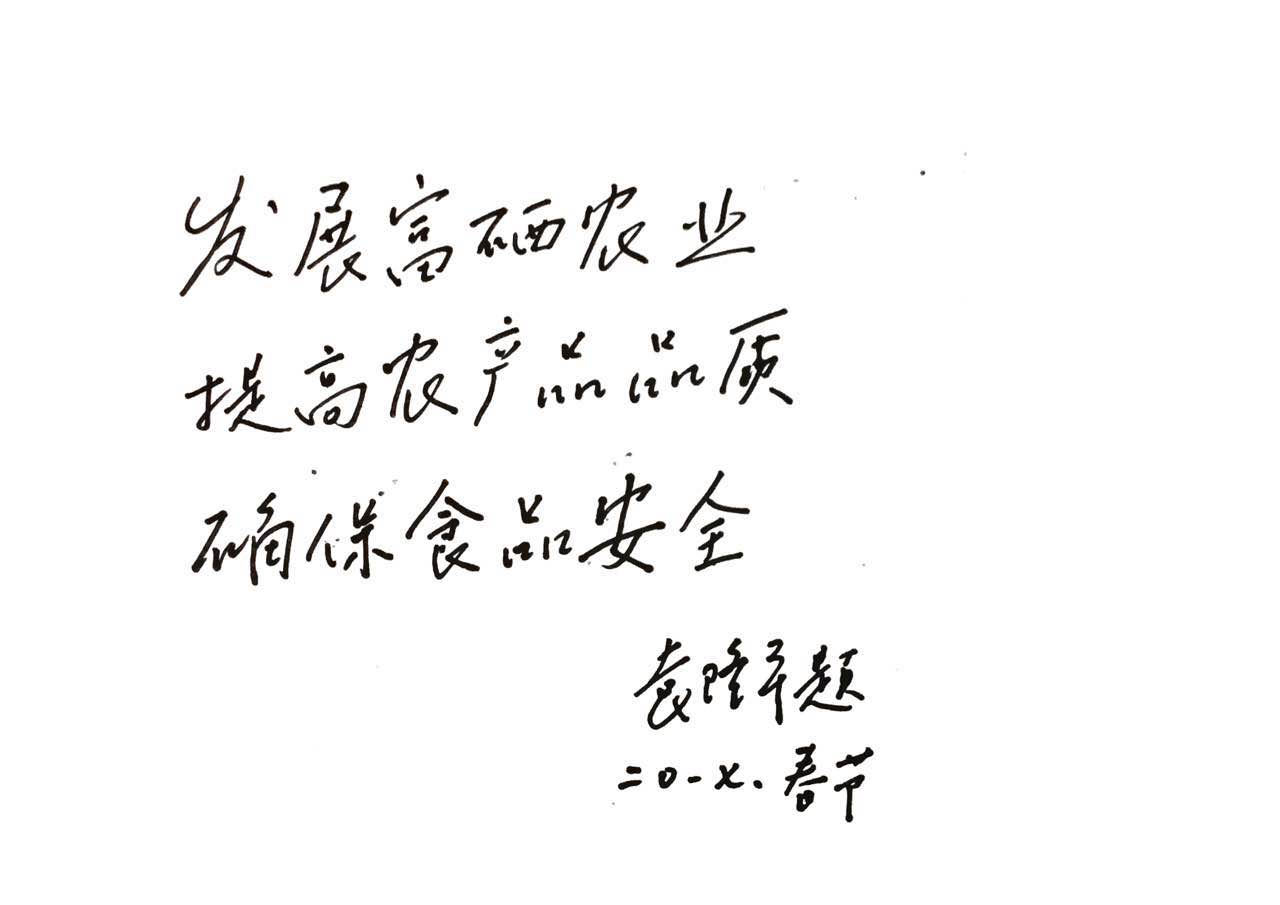 发展富硒农业
提高农产品品质
确保食品安全
袁隆平题
二0一七.春节